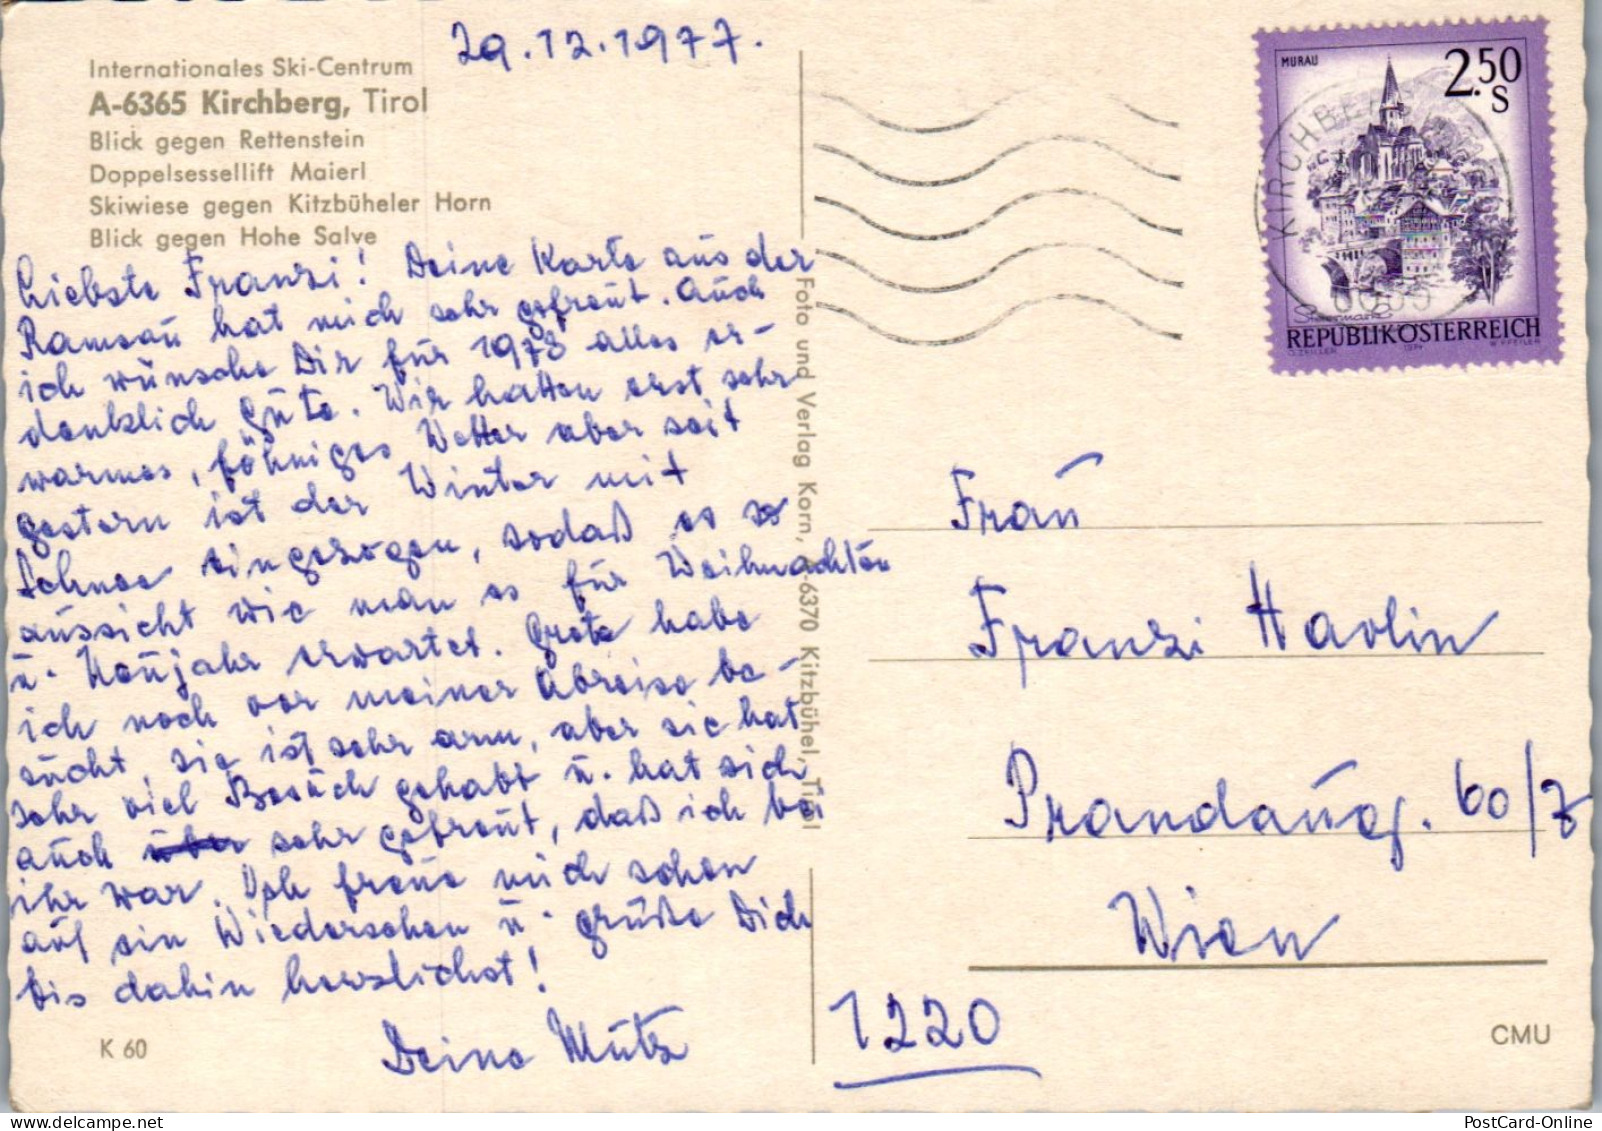 29.12.1977.
Internationales Ski-Centrum
A-6365 Kirchberg, Tirol
Blick gegen Rettenstein
Doppelsessellift Maierl
Skiwiese gegen Kitzbüheler Horn
Blick gegen Hohe Salve
Liebste Franzi! Deine Karte aus der
Ramsau hat mich sehr gefreut. Auch
ich wünsche Dir für 1978 alles er-
denklich Gute. Wir hatten erst sehr
warmes, föhniges Wetter aber seit
gestern ist der Winter mit
Schnee eingezogen, sodaß es so
aussieht wie man es für Weihnachten
u. Neujahr erwartet. Grete habe
ich noch vor meiner Abreise be-
sucht, sie ist sehr arm, aber sie hat
sehr viel Besuch gehabt u. hat sich
auch über sehr gefreut, daß ich bei
ihr war. Ich freue mich schon
auf ein Wiedersehen u. grüße Dich
bis dahin herzlichst!
Deine Mutz
K 60
Foto und Verlag Korn, A-6370 Kitzbühel, Tirol
MURAU
2.50
S
Steiermark
REPUBLIK ÖSTERREICH
KIRCHBERG
Frau
Franzi Havlin
Prandaug. 60/7
Wien
1220
CMU
PostCard-Online